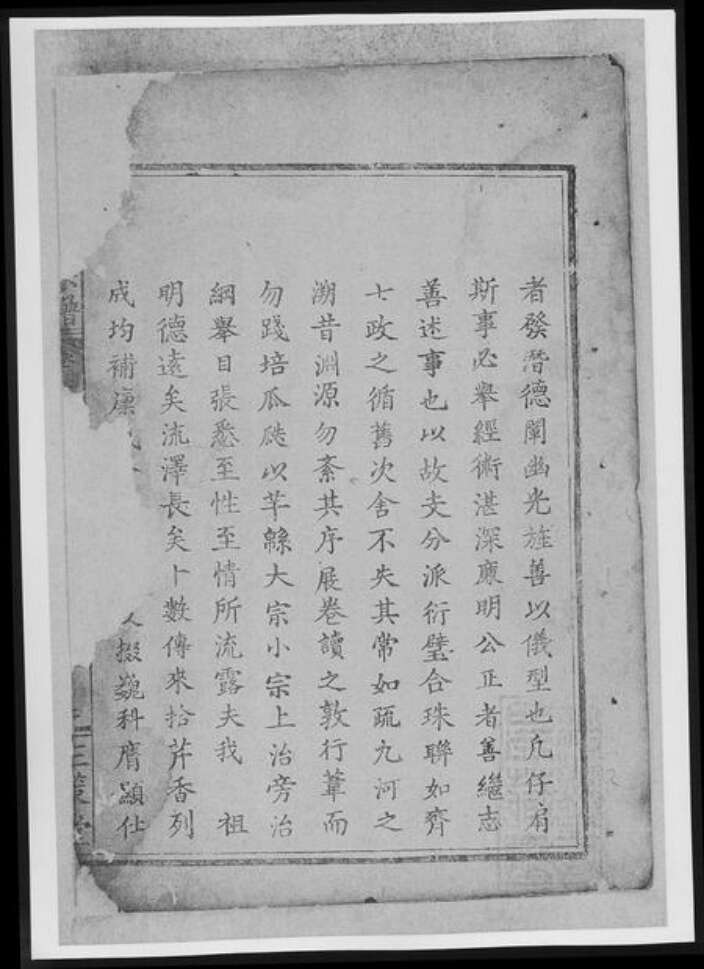 者發潛德闡幽光旌善以儀型也凡仔肩
斯事必舉經術湛深廉明公正者善繼志
善述事也以故支分派衍璧合珠聯如齊
七政之循舊次舍不失其常如疏九河之
溯昔淵源勿紊其序展卷讀之敦行葦而
勿踐培瓜瓞以芊緜大宗小宗上治旁治
綱舉目張悉至性至情所流露夫我 祖
明德遠矣流澤長矣卜數傳來拾芹香列
成均補廩
掇巍科膺顯仕
譜
三槐堂